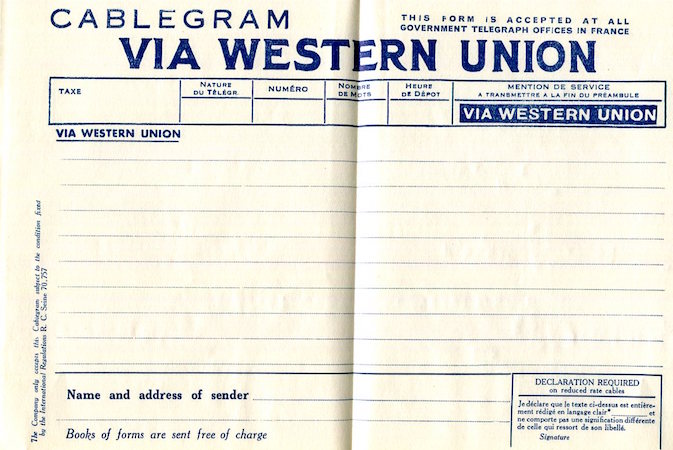 CABLEGRAM
THIS FORM IS ACCEPTED AT ALL
GOVERNMENT TELEGRAPH OFFICES IN FRANCE
VIA WESTERN UNION
TAXE
NATURE
DU TÉLÉGR.
NUMÉRO
NOMBRE
DE MOTS
HEURE
DE DÉPOT
MENTION DE SERVICE
A TRANSMETTRE A LA FIN DU PRÉAMBULE
VIA WESTERN UNION
VIA WESTERN UNION
The Company only accepts this Cablegram subject to the condition fixed
by the International Regulations R. C. Seine 70,757
Name and address of sender
Books of forms are sent free of charge
DECLARATION REQUIRED
on reduced rate cables
Je déclare que le texte ci-dessus est entière-
ment rédigé en langage clair* et
ne comporte pas une signification différente
de celle qui ressort de son libellé.
Signature